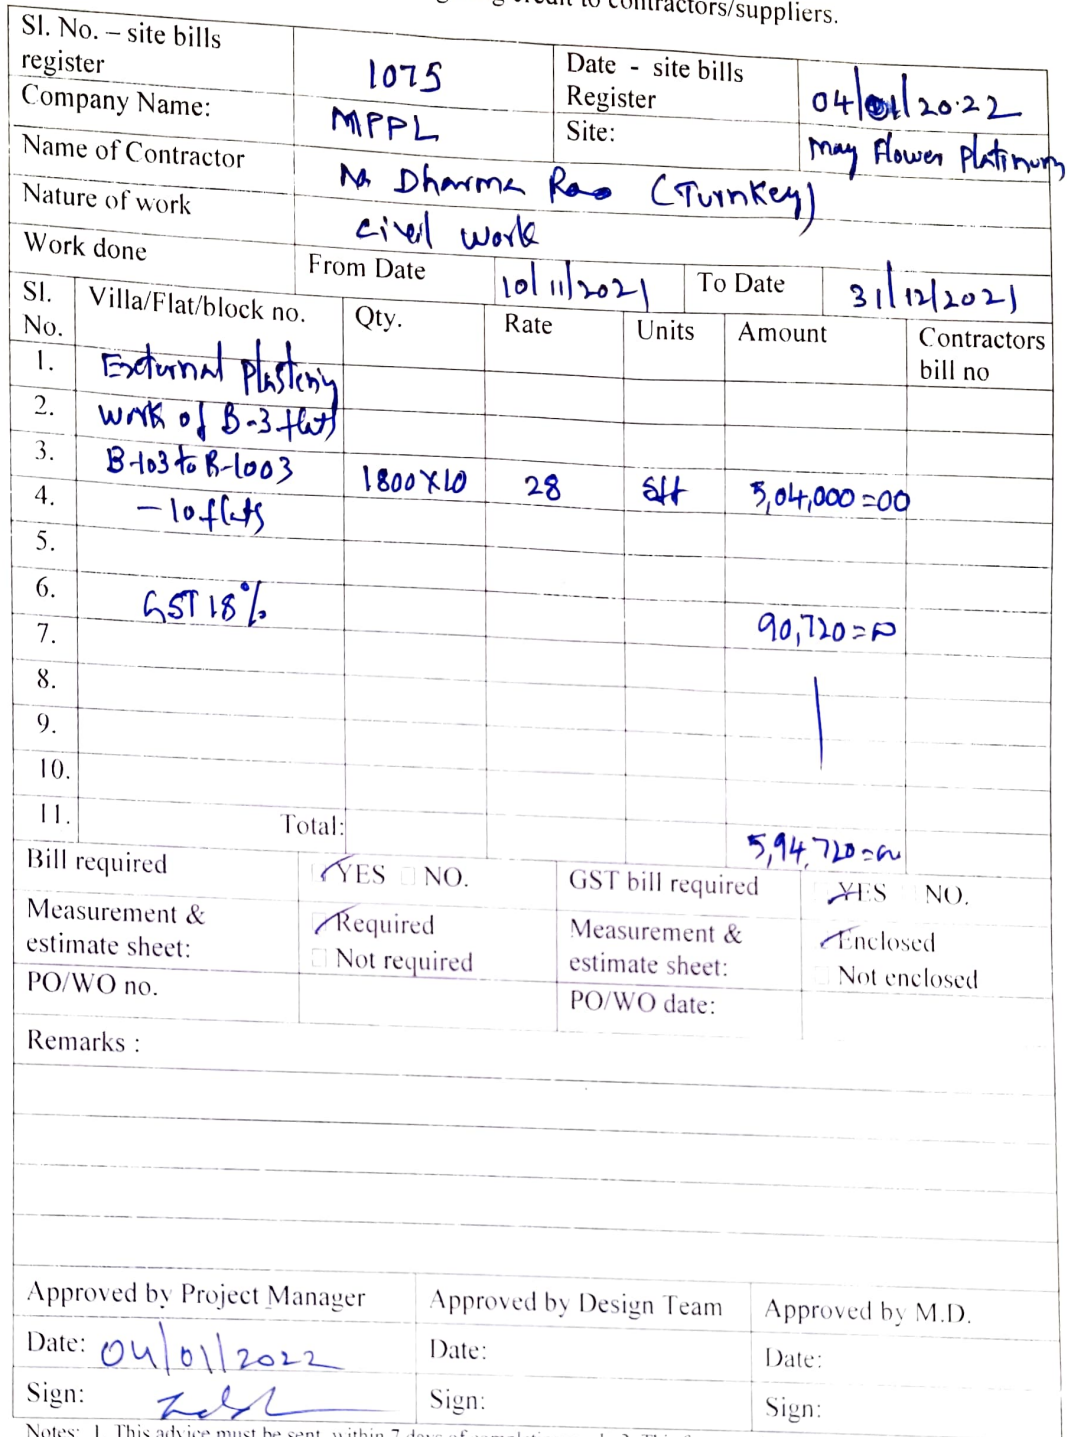 credit to contractors/suppliers.
Sl. No. – site bills register 1075 Date - site bills Register 04/01/20.22
Company Name: MPPL Site: May Flower Platinum
Name of Contractor Dharma Rao (Turnkey)
Nature of work civil work
Work done From Date 10/11/2021 To Date 31/12/2021
Sl. No. Villa/Flat/block no. Qty. Rate Units Amount Contractors bill no
1. External Plastering
2. work of B-3 flats
3. B-103 to B-1003 1800 X 10 28 sft 5,04,000=00
4. - 10 flats
5.
6. GST 18%
7. 90,720=00
8.
9.
10.
11. Total: 5,94,720=00
Bill required YES NO. GST bill required YES NO.
Measurement & estimate sheet: Required Not required Measurement & estimate sheet: Enclosed Not enclosed
PO/WO no. PO/WO date:
Remarks :
Approved by Project Manager Approved by Design Team Approved by M.D.
Date: 04/01/2022 Date: Date:
Sign: Sign: Sign:
Notes: 1. This advice must be sent within 7 days of